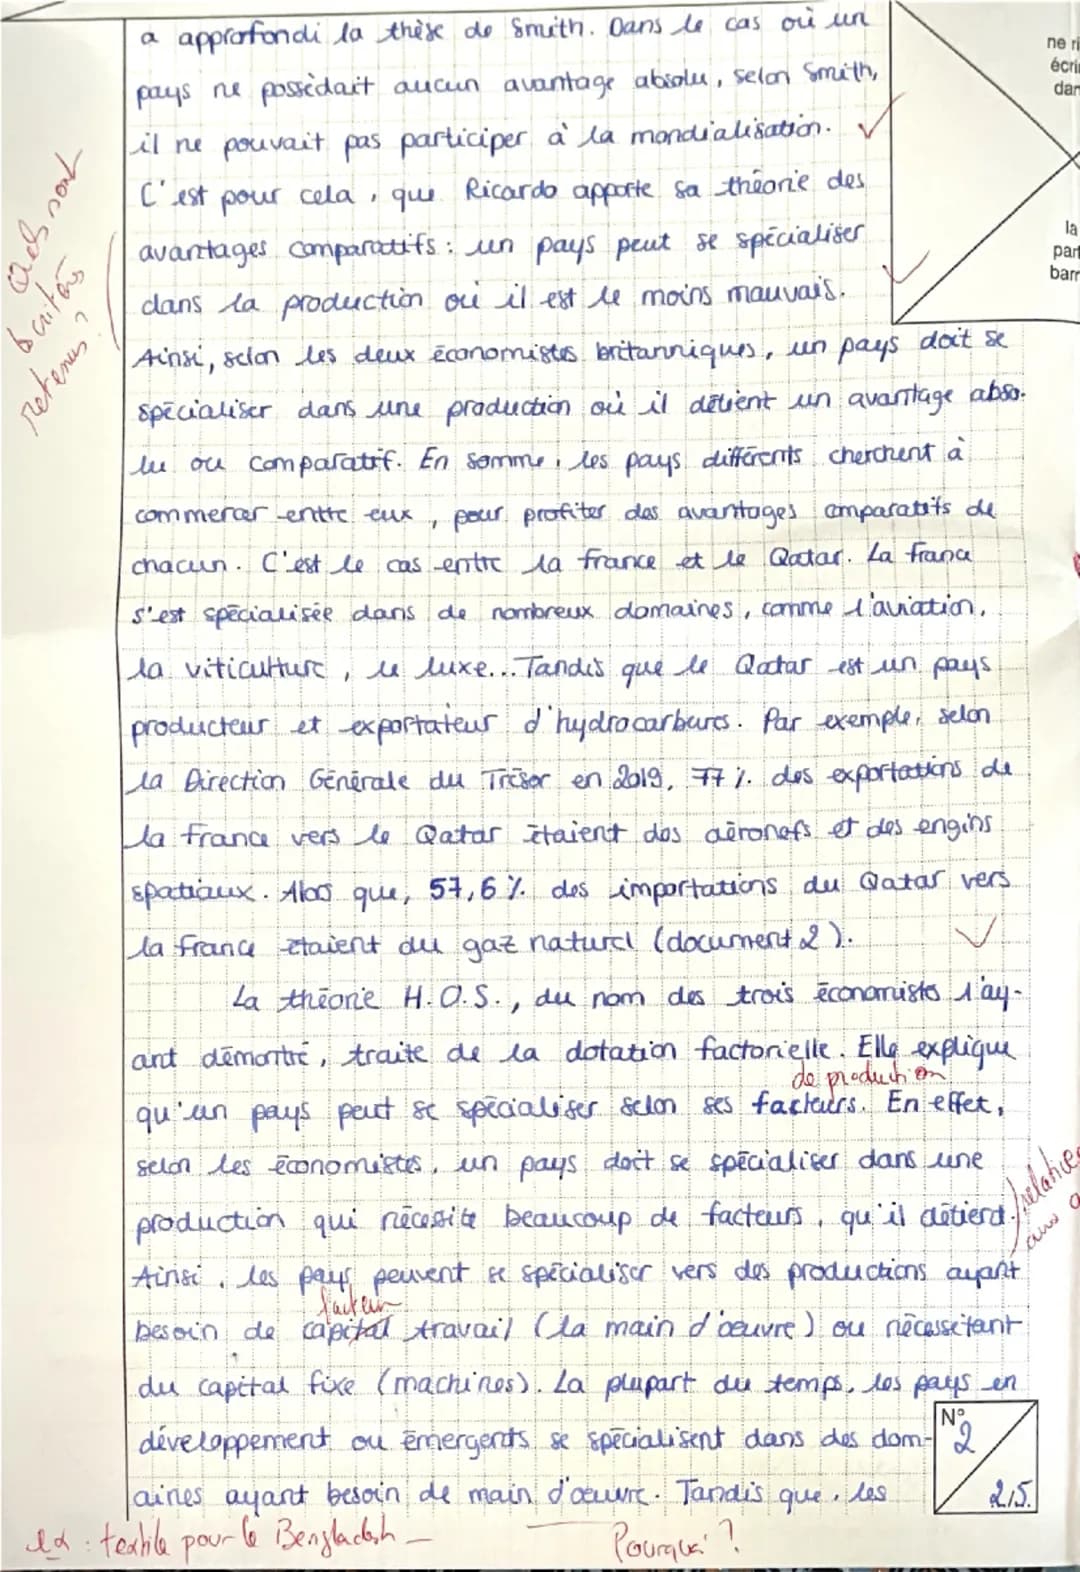 a approfondi la thèse de Smith. Dans le cas où un
pays ne possèdait aucun avantage absolu, selon Smith,
il ne pouvait pas participer à la mondialisation.
C'est pour cela, que Ricardo apporte sa théorie des
avantages comparatifs : un pays peut se spécialiser
dans la production où il est le moins mauvais.
Ainsi, selon les deux économistes britanniques, un pays doit se
spécialiser dans une production où il détient un avantage abso-
lu ou comparatif. En somme, les pays différents cherchent à
commercer entre eux, pour profiter des avantages comparatifs de
chacun. C'est le cas entre la France et le Qatar. La France
s'est spécialisée dans de nombreux domaines, comme l'aviation,
la viticulture, le luxe... Tandis que le Qatar est un pays
producteur et exportateur d'hydrocarbures. Par exemple, selon
la Direction Générale du Trésor en 2019, 77 % des exportations de
la France vers le Qatar étaient des aéronefs et des engins
spatiaux. Alors que, 57,6 % des importations du Qatar vers
la France étaient du gaz naturel (document 2).
La théorie H.O.S., du nom des trois économistes l'ay-
ant démontré, traite de la dotation factorielle. Elle explique
de production
qu'un pays peut se spécialiser selon ses facteurs. En effet,
selon les économistes, un pays doit se spécialiser dans une
production qui nécessite beaucoup de facteurs, qu'il détient.
Ainsi, les pays peuvent se spécialiser vers des productions ayant
facteur
besoin de capital travail (la main d'œuvre) ou nécessitant
du capital fixe (machines). La plupart du temps, les pays en
développement ou émergents se spécialisent dans des dom-
aines ayant besoin de main d'œuvre. Tandis que, les
ex : textile pour le Bengladesh
Pourquoi ?
Quels sont
retenus ?
ne ri
écri
dan
la
part
barr
N°
2
2/5.